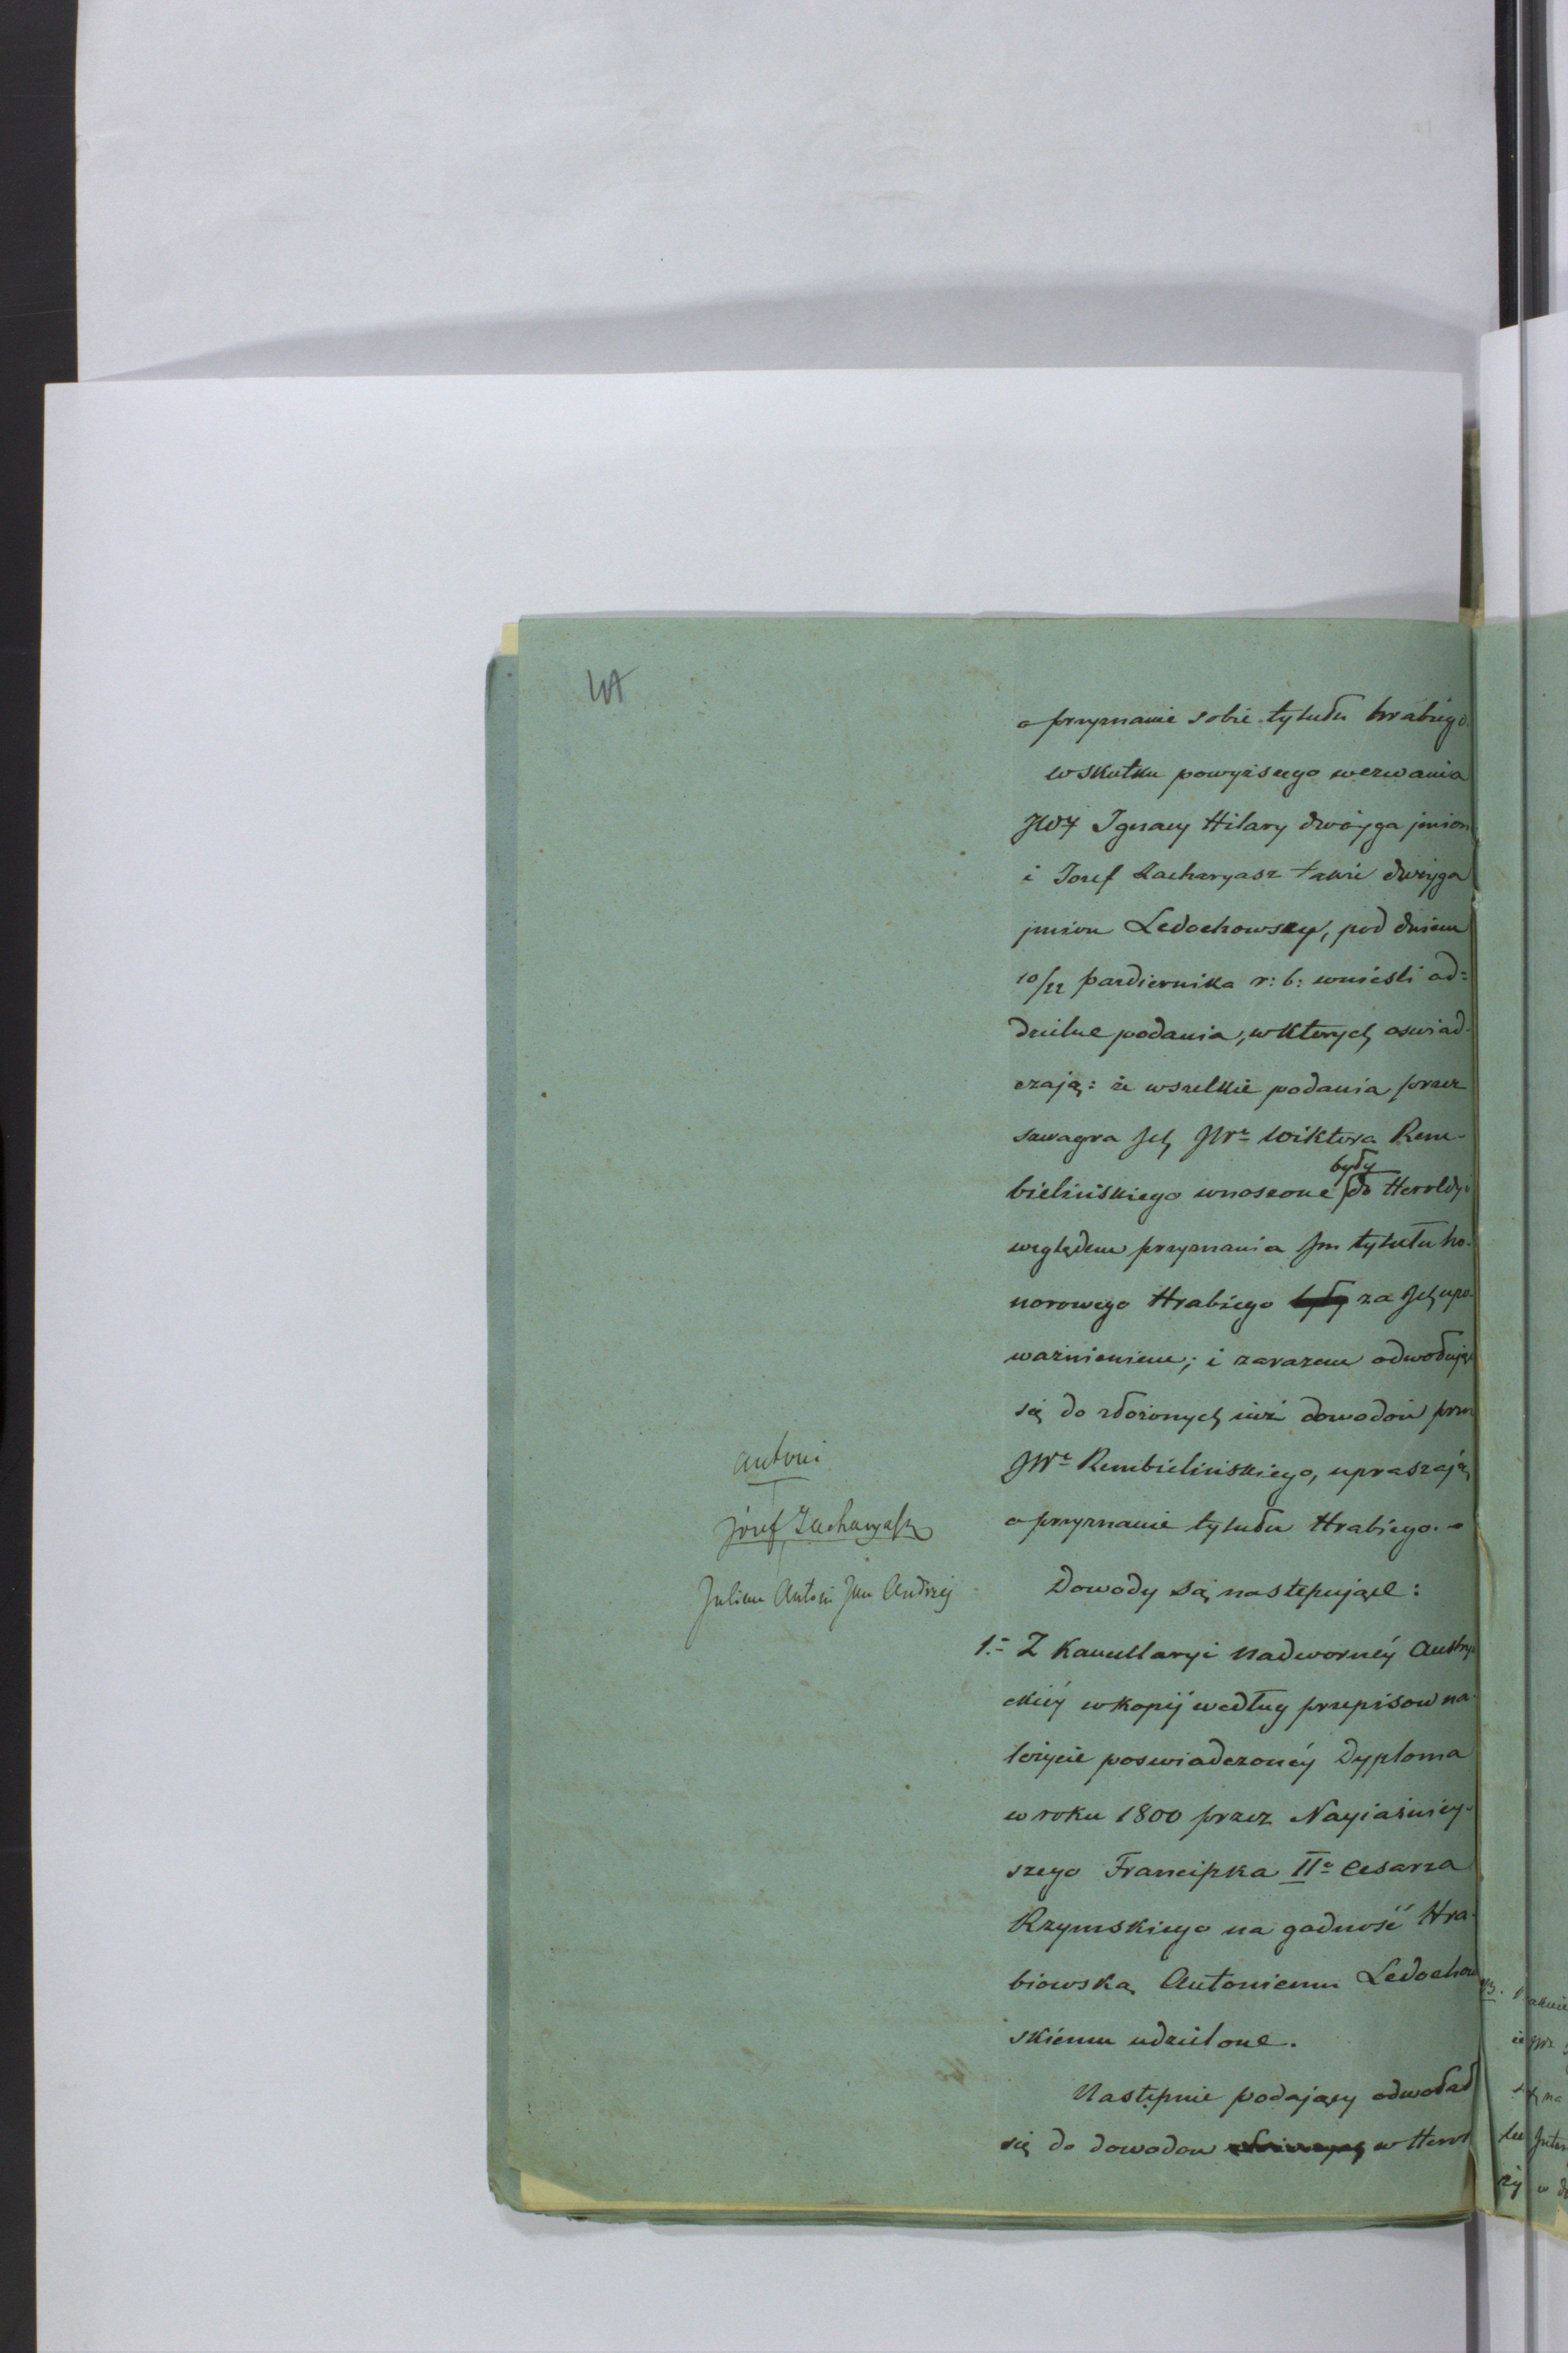 o przyznanie sobie tytułu hrabiego.
w skutku powyższego wezwania
JWJ Ignacy Hilary dwoyga jmion
i Josef Zacharyasz także dwoyga
jmion Ledochowscy, pod dniem
10/22 pazdziernika r: b: wniesli od=
dzielne podania, w ktorych oswiad-
czają: że wszelkie podania przez
szwagra Jch JWo Wiktora Rem-
bielińskiego wnoszone były do Heroldyi
względem przyznania Jm tytułu ho-
norowego Hrabiego były za Jch upo-
ważnieniem; i zarazem odwołując
się do złożonych już dowodów przez
JWo Rembielińskiego, upraszają
o przyznanie tytułu Hrabiego. -
Dowody są następujące:
1.- Z Kancellaryi Nadwornéy Austry-
ackiéy w kopij według przepisow na-
leżycie poswiadczonéy Dyploma
w roku 1800 przez Nayiaśniey-
szego Franciszka IIo Cesarza
Rzymskiego na godność Hra-
biowską Antoniemu Ledochow
skiému udzielone.
Następnie podający odwołał
się do dowodow w Herol
Antoni
józef Zacharyasz
Julian Antoni Jan Andrzej